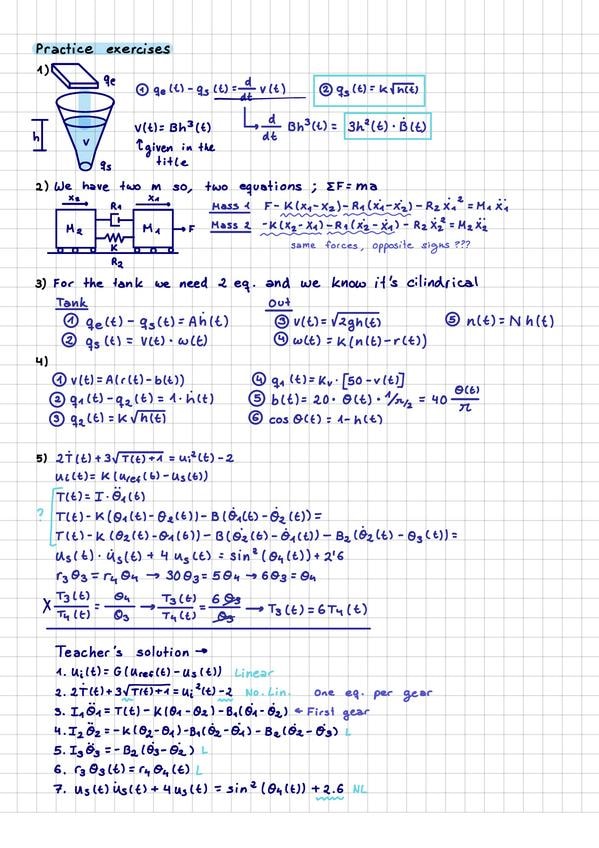 Practice exercises
1)
qe
① qe(t) - qs(t) = d/dt v(t)
② qs(t) = K√h(t)
h
V
v(t) = Bh³(t)
↳ d/dt Bh³(t) = 3h²(t) · Ḃ(t)
↑given in the
title
qs
2) We have two m so, two equations ; ΣF = ma
x₂
R1
x₁
M₂
M₁
→ F
K
R₂
Mass 1 F - K(x₁-x₂) - R₁(ẋ₁-ẋ₂) - R₂ẋ₁² = M₁ẍ₁
Mass 2 -K(x₂-x₁) - R₁(ẋ₂-ẋ₁) - R₂ẋ₂² = M₂ẍ₂
same forces, opposite signs ???
3) For the tank we need 2 eq. and we know it's cilindrical
Tank
Out
① qe(t) - qs(t) = Aḣ(t)
③ v(t) = √2gh(t)
⑤ n(t) = N h(t)
② qs(t) = V(t) · w(t)
④ w(t) = K(n(t) - r(t))
4)
① v(t) = A(r(t) - b(t))
④ q₁(t) = Kv · [50 - v(t)]
② q₁(t) - q₂(t) = 1 · ḣ(t)
⑤ b(t) = 20 · θ(t) · 1/π/2 = 40 θ(t)/π
③ q₂(t) = K√h(t)
⑥ cos θ(t) = 1 - h(t)
5) 2Ṫ(t) + 3√T(t)+1 = ui²(t) - 2
ui(t) = K(uref(t) - us(t))
T(t) = I · Θ̈₁(t)
?
T(t) - K(θ₁(t) - θ₂(t)) - B(θ̇₁(t) - θ̇₂(t)) =
T(t) - K(θ₂(t) - θ₁(t)) - B(θ̇₂(t) - θ̇₁(t)) - B₂(θ̇₂(t) - θ₃(t)) =
us(t) · u̇s(t) + 4 us(t) = sin²(θ₄(t)) + 2'6
r₃θ₃ = r₄θ₄ → 30θ₃ = 5θ₄ → 6θ₃ = θ₄
X T₃(t)/T₄(t) = θ₄/θ₃ → T₃(t)/T₄(t) = 6θ₃/θ₃ → T₃(t) = 6T₄(t)
Teacher's solution →
1. ui(t) = G(uref(t) - us(t)) Linear
2. 2Ṫ(t) + 3√T(t)+1 = ui²(t) - 2 No.Lin. One eq. per gear
3. I₁θ̈₁ = T(t) - K(θ₁-θ₂) - B₁(θ̇₁-θ̇₂) ← First gear
4. I₂θ̈₂ = -K(θ₂-θ₁) - B₁(θ̇₂-θ̇₁) - B₂(θ̇₂-θ̇₃) L
5. I₃θ̈₃ = -B₂(θ̇₃-θ̇₂) L
6. r₃θ₃(t) = r₄θ₄(t) L
7. us(t)u̇s(t) + 4us(t) = sin²(θ₄(t)) + 2.6 NL